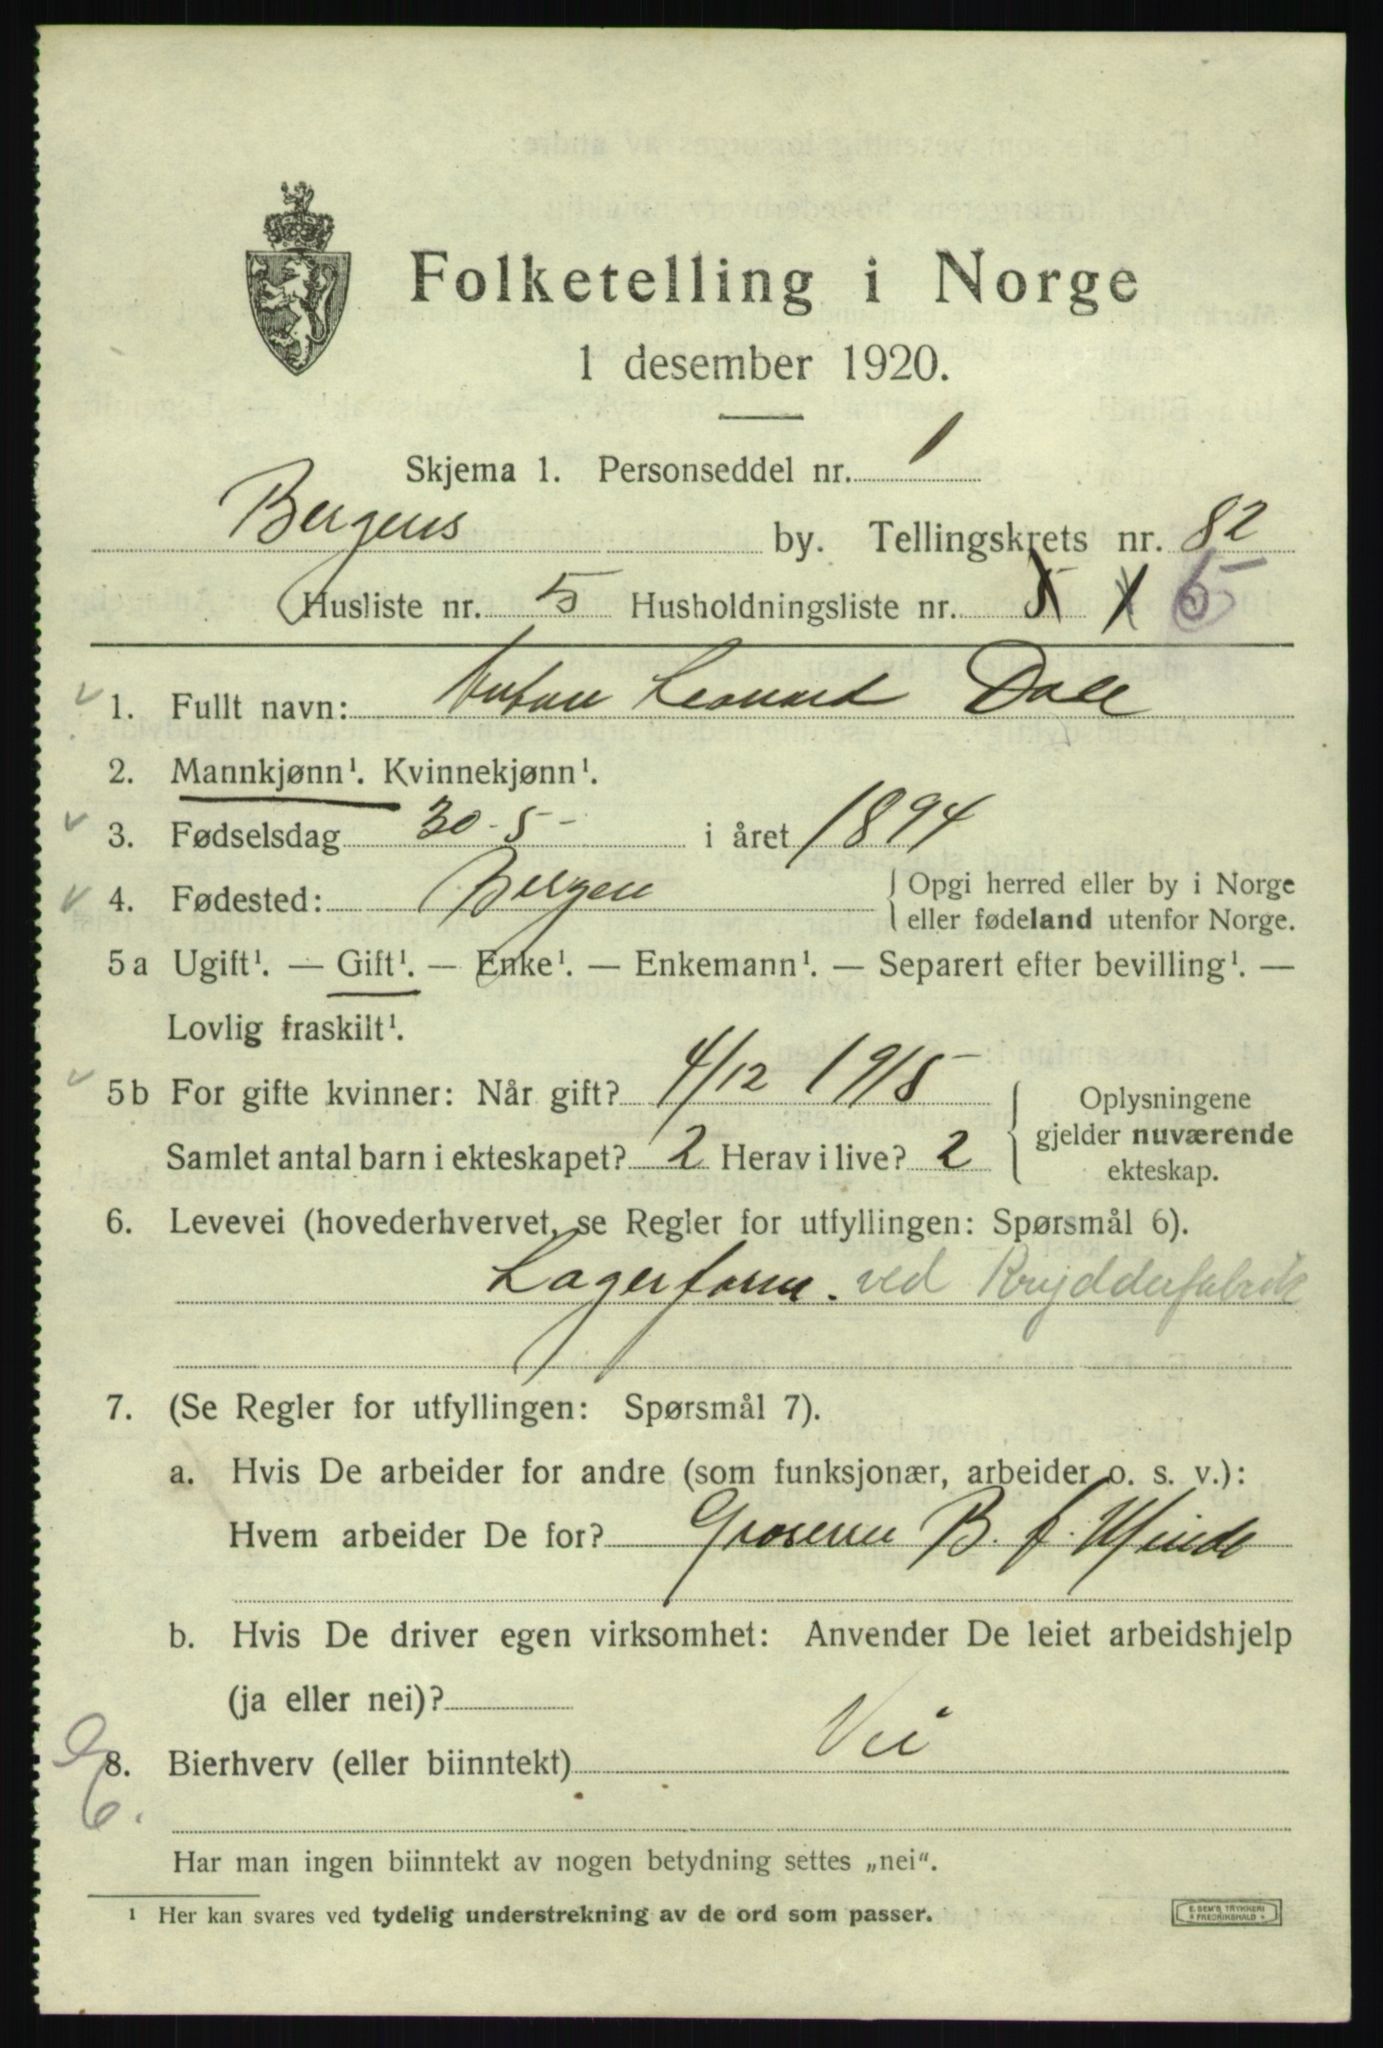 Folketelling i Norge
1 desember 1920.
Skjema 1. Personseddel nr. 1
Bergens by. Tellingskrets nr. 82
Husliste nr. 5 Husholdningsliste nr. 5 1 6
1. Fullt navn: Anton Leonard Dale
2. Mannkjønn¹. Kvinnekjønn¹.
3. Fødselsdag 30-5- i året 1894
4. Fødested: Bergen { Opgi herred eller by i Norge
eller fødeland utenfor Norge.
5 a Ugift¹. — Gift¹. — Enke¹. — Enkemann¹. — Separert efter bevilling¹. —
Lovlig fraskilt¹.
5 b For gifte kvinner: Når gift? 4/12 1915
Samlet antal barn i ekteskapet? 2 Herav i live? 2
{ Oplysningene
gjelder nuværende
ekteskap.
6. Levevei (hovederhvervet, se Regler for utfyllingen: Spørsmål 6).
Lagerform. ved Krydderfabrik
7. (Se Regler for utfyllingen: Spørsmål 7).
a. Hvis De arbeider for andre (som funksjonær, arbeider o. s. v.):
Hvem arbeider De for? B. f.
b. Hvis De driver egen virksomhet: Anvender De leiet arbeidshjelp
(ja eller nei)?
8. Bierhverv (eller biinntekt) Nei
Har man ingen biinntekt av nogen betydning settes „nei".
¹ Her kan svares ved tydelig understrekning av de ord som passer.
E. SEM'S TRYKKERI
* FREDRIKSHALD *